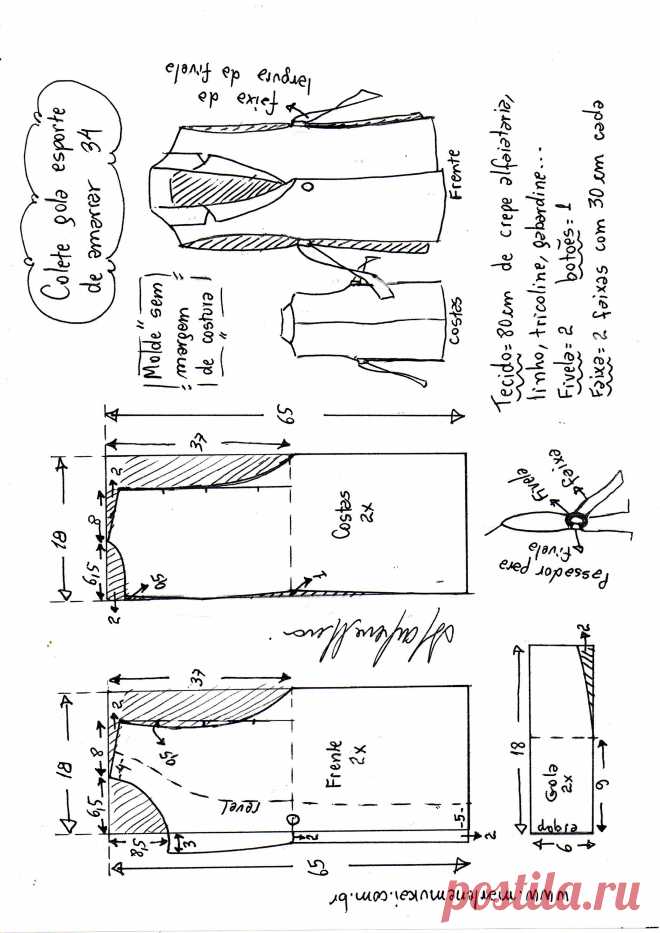 Colete gola esporte
de amarrar 34
faixa da
largura da fivela
Frente
costas
Molde sem
margem
de costura
Tecido= 80cm de crepe alfaiataria,
linho, tricoline, gabardine...
Fivela= 2 botões= 1
Faixa= 2 faixas com 30cm cada
65
37
18
2
8
6,5
0,5
2
1
Costas
2x
fivela
faixa
Passador para
fivela
37
18
2
8
4
6,5
0,5
Frente
2x
revel
5,8
3
2
5
2
65
18
2
Gola
2x
dobra
9
6
www.marlenemukai.com.br
postila.ru